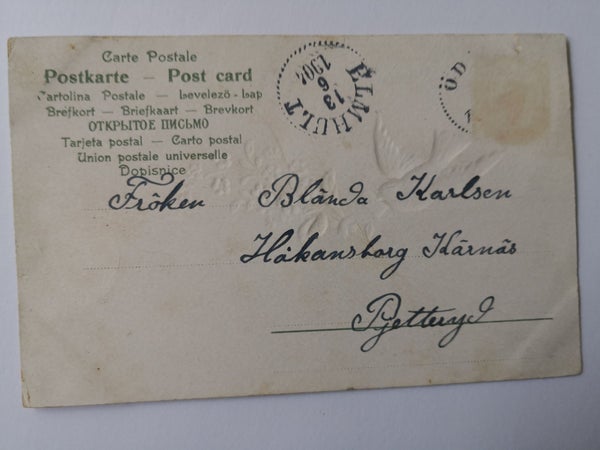 Carte Postale
Postkarte — Post card
Cartolina Postale — Levelező-Lap
Brefkort — Briefkaart — Brevkort
ОТКРЫТОЕ ПИСЬМО
Tarjeta postal — Carto postal
Union postale universelle
Dopisnice
ELMHULT
13
6
1904
ÖD
Fröken Blända Karlsen
Håkansborg Kärnäs
Pjetteryd